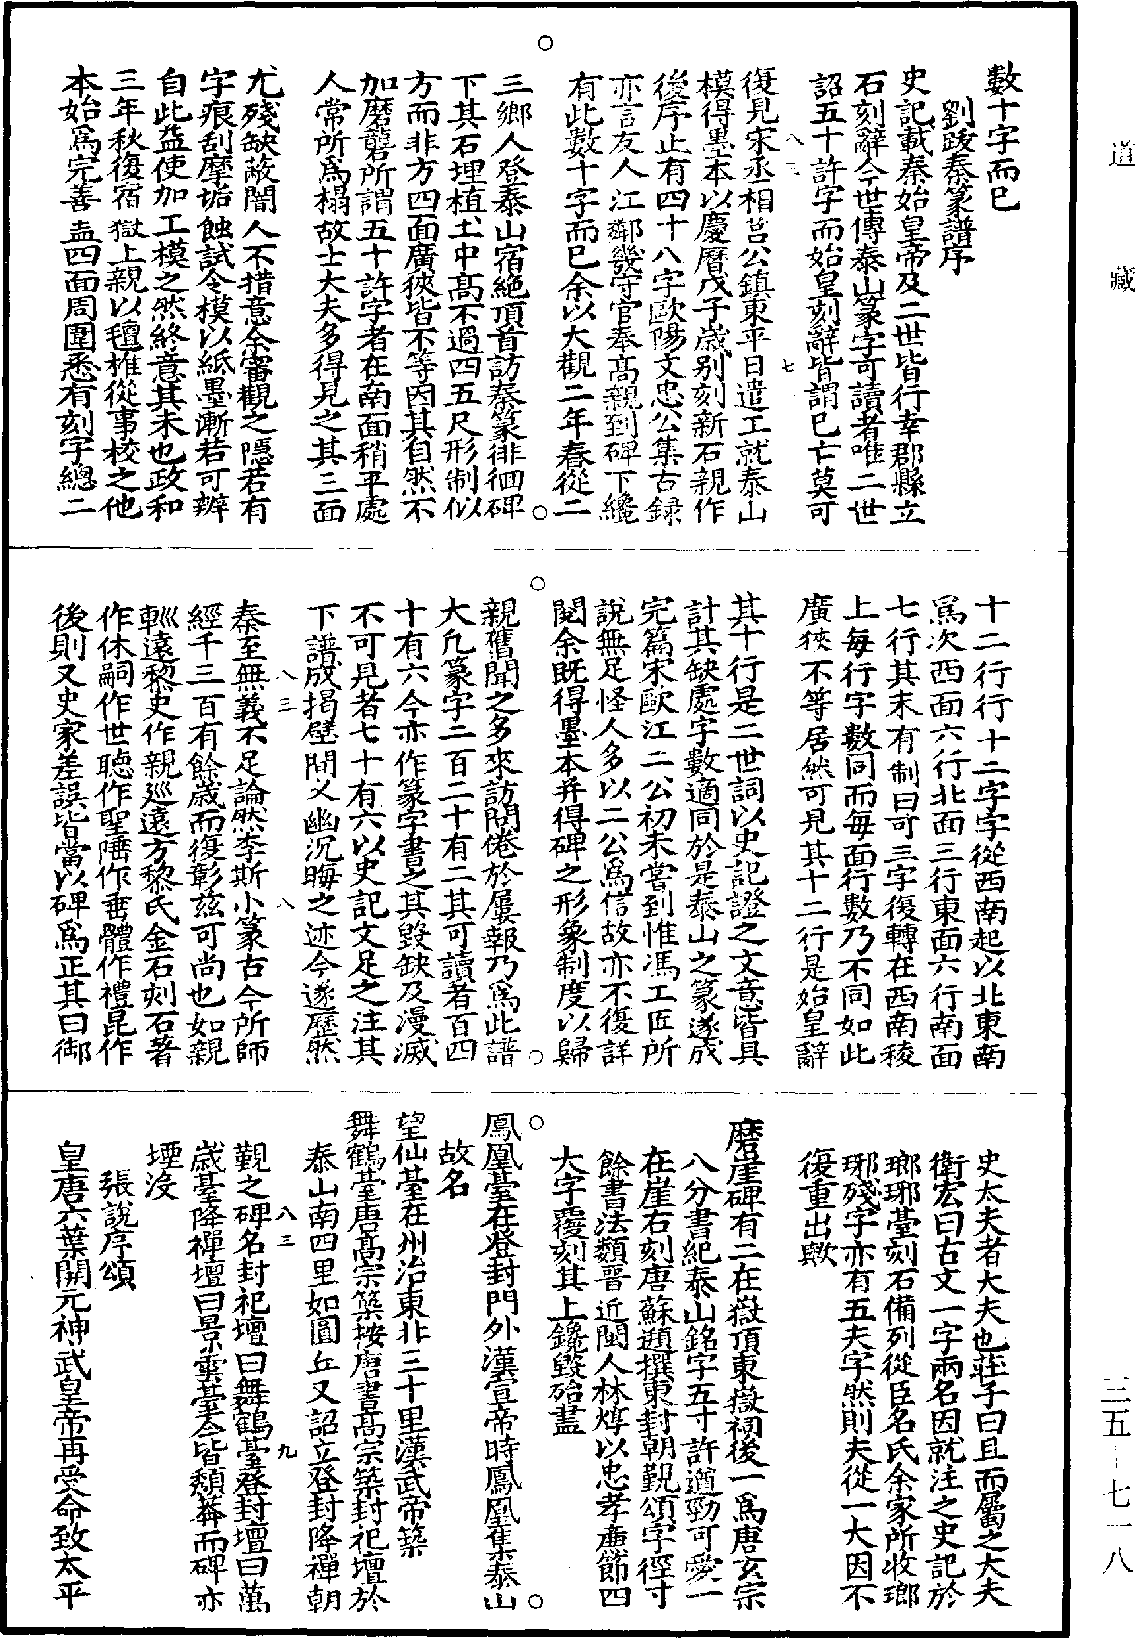 道藏
數十字而已
劉跂秦篆譜序
史記載秦始皇帝及二世皆行幸郡縣立
石刻辭今世傳泰山篆字可讀者唯二世
詔五十許字而始皇刻辭皆謂已亡莫可
八三 七
復見宋丞相莒公鎮東平日遣工就泰山
模得墨本以慶曆戊子歲别刻新石親作
後序止有四十八字歐陽文忠公集古錄
亦言友人江鄰幾守官奉高親到碑下纔
有此數十字而已余以大觀二年春從二
三鄉人登泰山宿絶頂首訪秦篆徘徊碑
下其石埋植土中高不過四五尺形制似
方而非方四面廣狹皆不等因其自然不
加磨礱所謂五十許字者在南面稍平處
人常所為榻故士大夫多得見之其三面
尤殘缺蔽闇人不措意余審觀之隱若有
字痕刮摩垢蝕試令模以紙墨漸若可辨
自此益使加工模之然終意其未也政和
三年秋復宿嶽上親以氊椎從事校之他
本始為完善盖四面周圍悉有刻字總二
十二行行十二字字從西南起以北東南
為次西面六行北面三行東面六行南面
七行其末有制曰可三字復轉在西南稜
上每行字數同而每面行數乃不同如此
廣狹不等居然可見其十二行是始皇辭
其十行是二世詞以史記證之文意皆具
計其缺處字數適同於是泰山之篆遂成
完篇宋歐江二公初未嘗到惟馮工匠所
說無足怪人多以二公為信故亦不復詳
閱余既得墨本并得碑之形象制度以歸
親舊聞之多來訪問倦於屢報乃為此譜
大凡篆字二百二十有二其可讀者百四
十有六今亦作篆字書之其毀缺及漫滅
不可見者七十有六以史記文足之注其
下譜成揭壁間乂幽沉晦之迹今遂歷然
八三 八
秦至無義不足論然李斯小篆古今所師
經千三百有餘歲而復彰兹可尚也如親
輕遠黎史作親廵遠方黎民金石刻石著
作休嗣作世聽作聖陲作垂體作禮昆作
後則又史家差誤皆當以碑為正其曰御
史太夫者大夫也莊子曰且而屬之大夫
衛宏曰古文一字兩名因就注之史記於
瑯琊臺刻石備列從臣名氏余家所收瑯
琊殘字亦有五夫字然則夫從一大因不
復重出歟
磨崖碑有二在嶽頂東嶽祠後一為唐玄宗
八分書紀泰山銘字五寸許遒勁可愛一
在崖右刻唐蘇頲撰東封朝覲頌字徑寸
餘書法類晋近閩人林焞以忠孝亷節四
大字覆刻其上鑱毀殆盡
鳳凰臺在登封門外漢宣帝時鳳凰集泰山
故名
望仙臺在州治東北三十里漢武帝築
舞鶴臺唐高宗築按唐書高宗築封祀壇於
泰山南四里如圓丘又詔立登封降禪朝
八三 九
覲之碑名封祀壇曰舞鶴臺登封壇曰萬
歲臺降禪壇曰景雲臺今皆頽莽而碑亦
堙没
張說序頌
皇唐六葉開元神武皇帝再受命致太平
三五-七一八